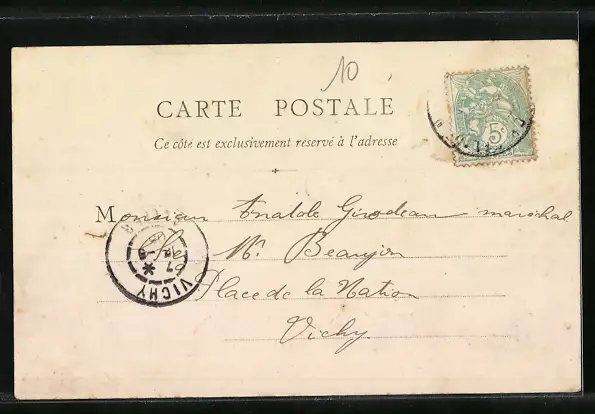 10
CARTE POSTALE
Ce côté est exclusivement réservé à l'adresse
5c
Monsieur Anatole Girodeau maréchal
Mr. Beaujon
Place de la Nation
Vichy.
VICHY *